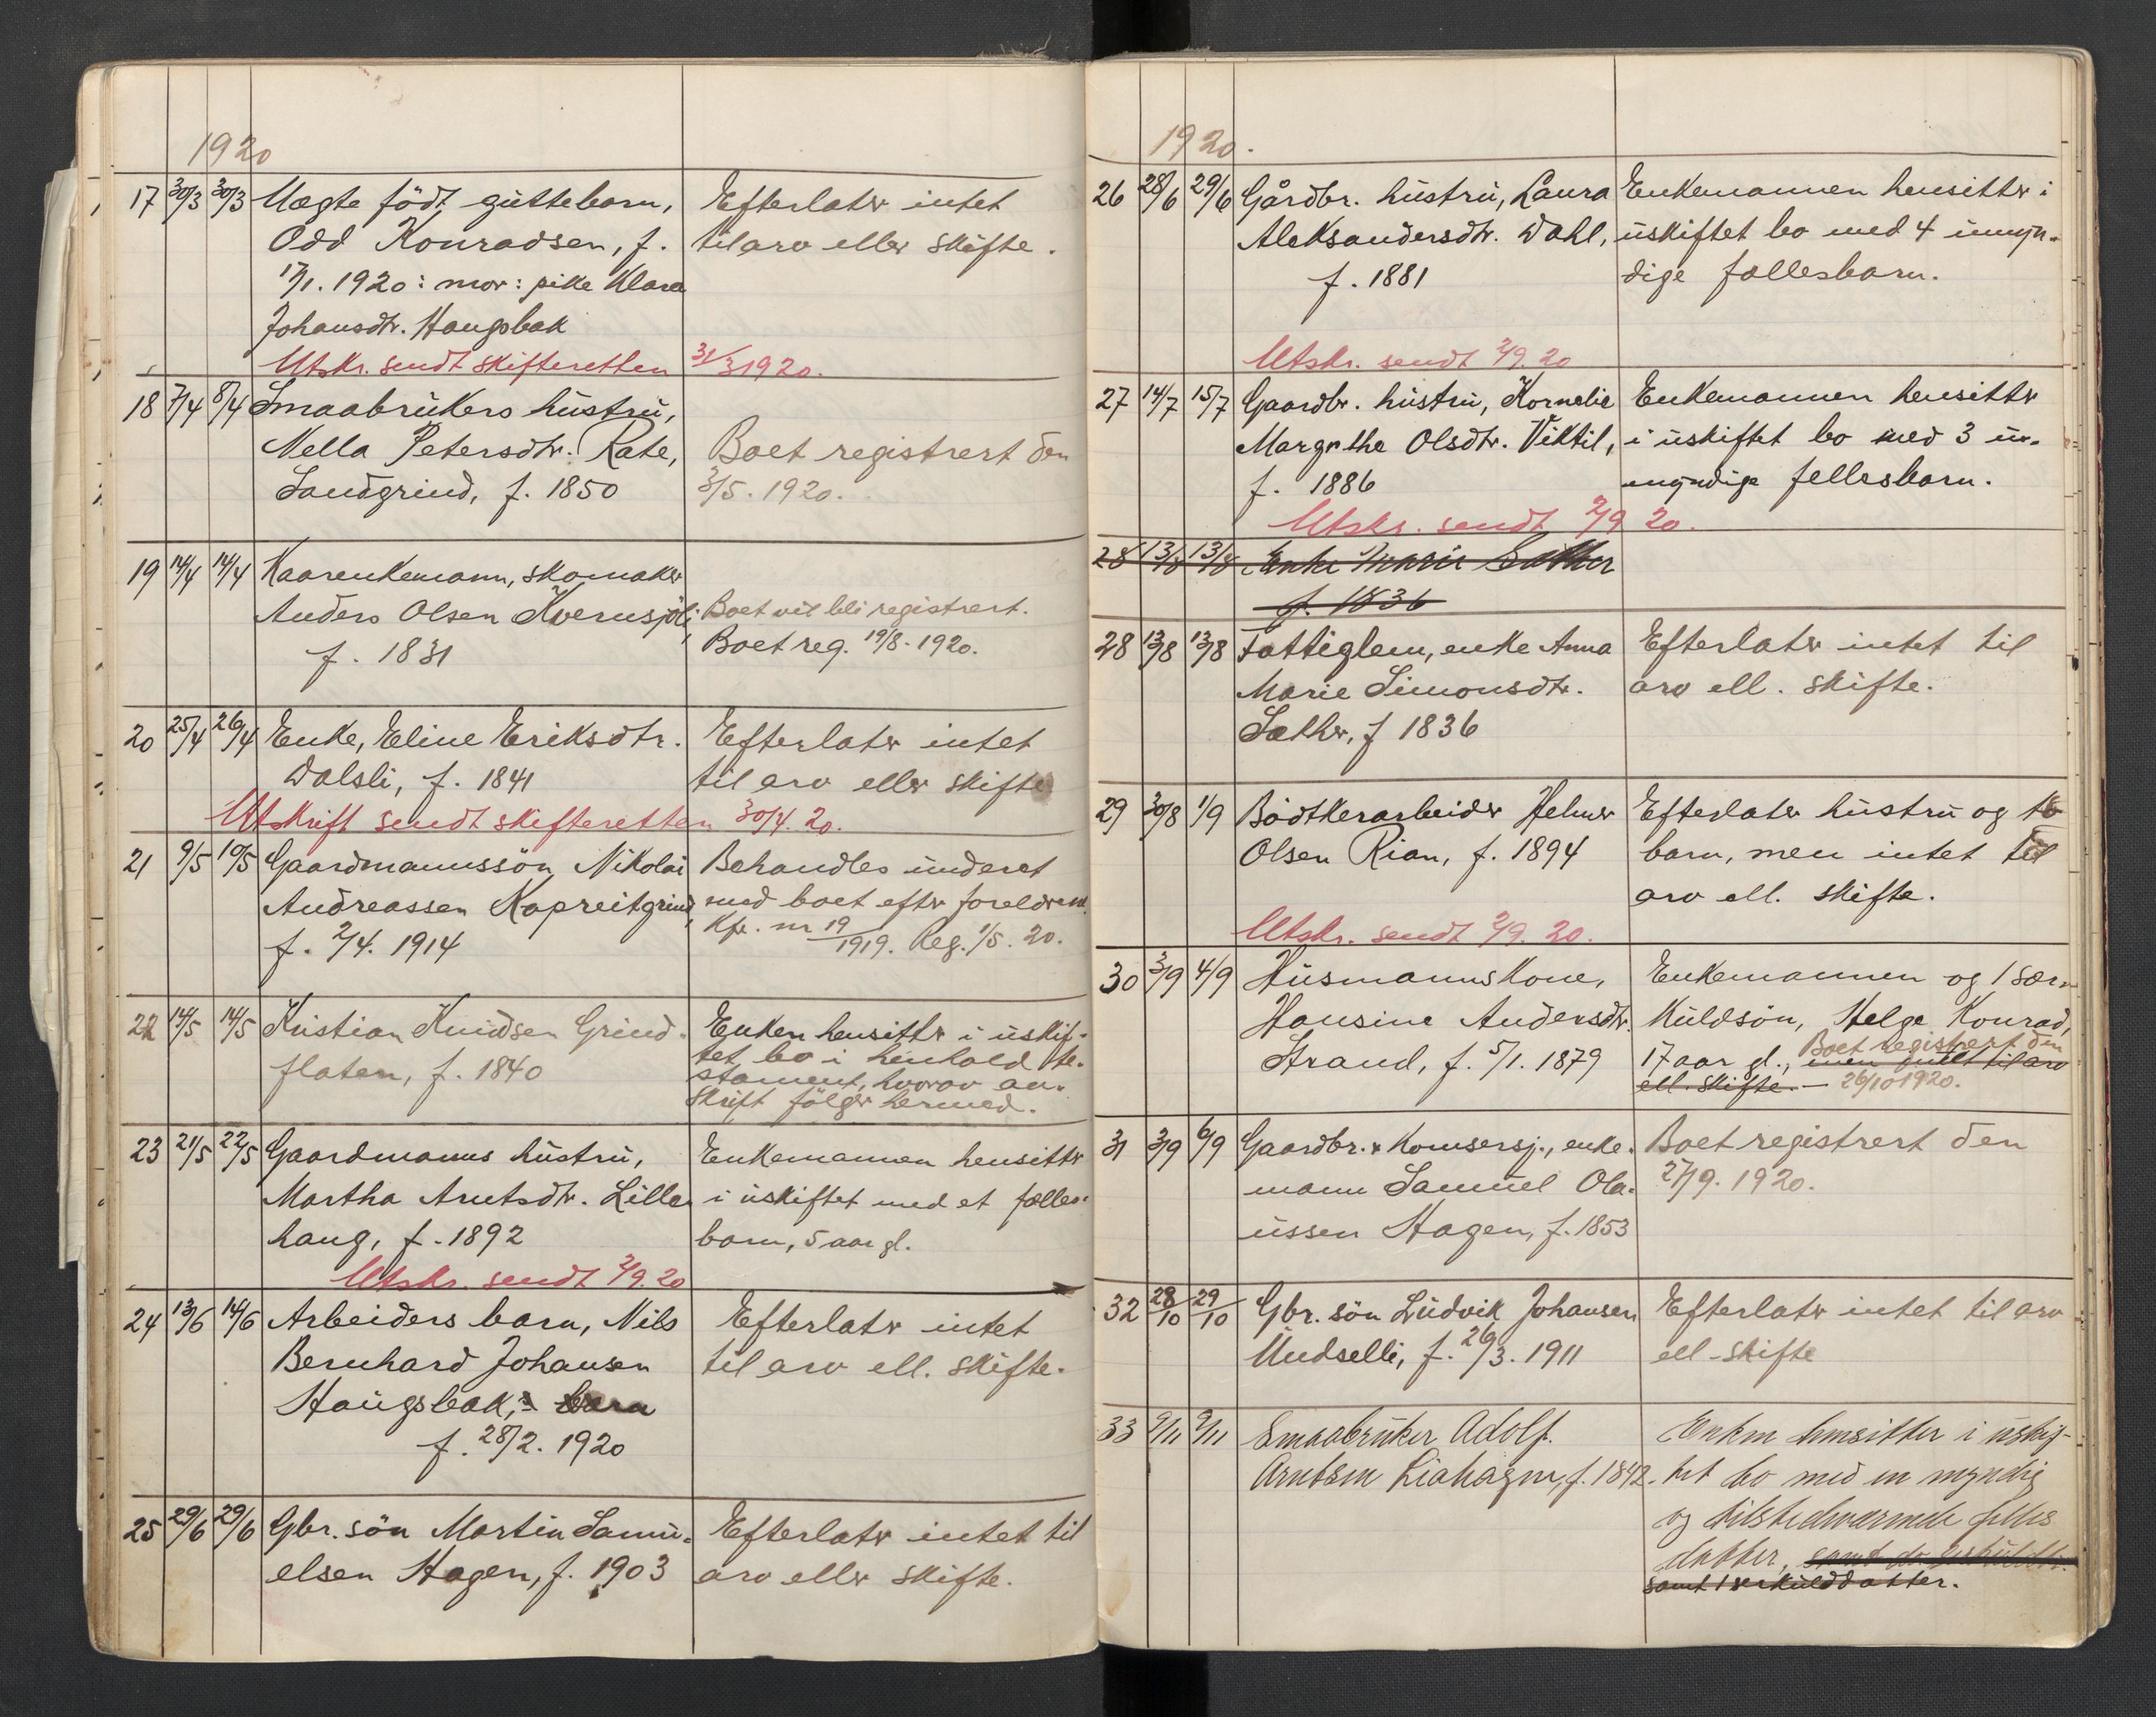 1920
17 30/3 30/3 Uægte födt guttebarn, Efterlater intet
Odd Konradsen, f. til arv eller skifte.
17/1. 1920: mor: pike Klara
Johansdtr. Haugsbak
Utskr. sendt skifteretten 31/3 1920.
18 7/4 8/4 Smaabrukers hustru,
Nella Petersdtr. Rate, Boet registrert den
Sandgrind, f. 1850 3/5. 1920.
19 14/4 14/4 Kaarenkemann, skomaker
Anders Olsen Kvernsjöli, Boet vil bli registrert.
f. 1831 Boet reg. 19/8. 1920.
20 25/4 26/4 Enke, Eline Eriksdtr. Efterlater intet
Dalsli, f. 1841 til arv eller skifte
Utskrift sendt skifteretten 30/4. 20.
21 9/5 10/5 Gaardmannssön Nikolai Behandles underet
Andreassen Kopreitgrind, med boet efter foreldrene.
f. 2/4. 1914 Kfr. nr 19/1919. Reg. 1/5. 20.
22 14/5 14/5 Kristian Knudsen Grind- Enken hensitter i uskif-
flaten, f. 1840 tet bo i henhold te-
stament, hvorav av-
skrift fölger hermed.
23 21/5 22/5 Gaardmanns hustru, Enkemannen hensitter
Martha Arntsdtr. Lille- i uskiftet med et fælles-
haug, f. 1892 barn, 5 aar gl.
Utskr. sendt 2/9. 20
24 13/6 14/6 Arbeiders barn, Nils Efterlater intet
Bernhard Johansen til arv ell. skifte.
Haugsbak,
f. 28/2. 1920
25 29/6 29/6 Gbr. sön Martin Samu- Efterlater intet til
elsen Hagen, f. 1903 arv eller skifte.
1920.
26 28/6 29/6 Gårdbr. hustru, Laura Enkemannen hensitter i
Aleksandersdtr. Dahl, uskiftet bo med 4 umyn-
f. 1881 dige fællesbarn.
Utskr. sendt 2/9. 20
27 14/7 15/7 Gaardbr. hustru, Kornelie Enkemannen hensitter
Margrethe Olsdtr. Viktil, i uskiftet bo med 3 u-
f. 1886 myndige fellesbarn.
Utskr. sendt 2/9 20.
28 13/8 13/8 Enke Marie Sæther
f. 1836
28 13/8 13/8 Fattiglem, enke Anna Efterlater intet til
Marie Simonsdtr. arv ell. skifte.
Sæther, f 1836
29 30/8 1/9 Bödtkerarbeider Helmer Efterlater hustru og to
Olsen Rian, f. 1894 barn, men intet til
arv ell. skifte.
Utskr. sendt 2/9. 20.
30 3/9 4/9 Husmannskone, Enkemannen og 1 sær-
Hansine Andersdtr. kuldsön, Helge Konrad,
Strand, f. 5/1. 1879 17 aar gl., men intet til arv Boet registrert den
ell. skifte. — 26/10 1920.
31 3/9 6/9 Gaardbr. & Komsersj., enke- Boet registrert den
mann Samuel Ola- 27/9. 1920.
ussen Hagen, f. 1853
32 28/10 29/10 Gbr. sön Ludvik Johansen Efterlater intet til arv
Undselli, f. 26/3. 1911 ell. skifte
33 9/11 9/11 Smaabruker Adolf Enken hensitter i uskif-
Arntsen Liahagen, f. 1842. tet bo med en myndig
og tilstedværende felles
datter,
samt 1 særkulddatter.